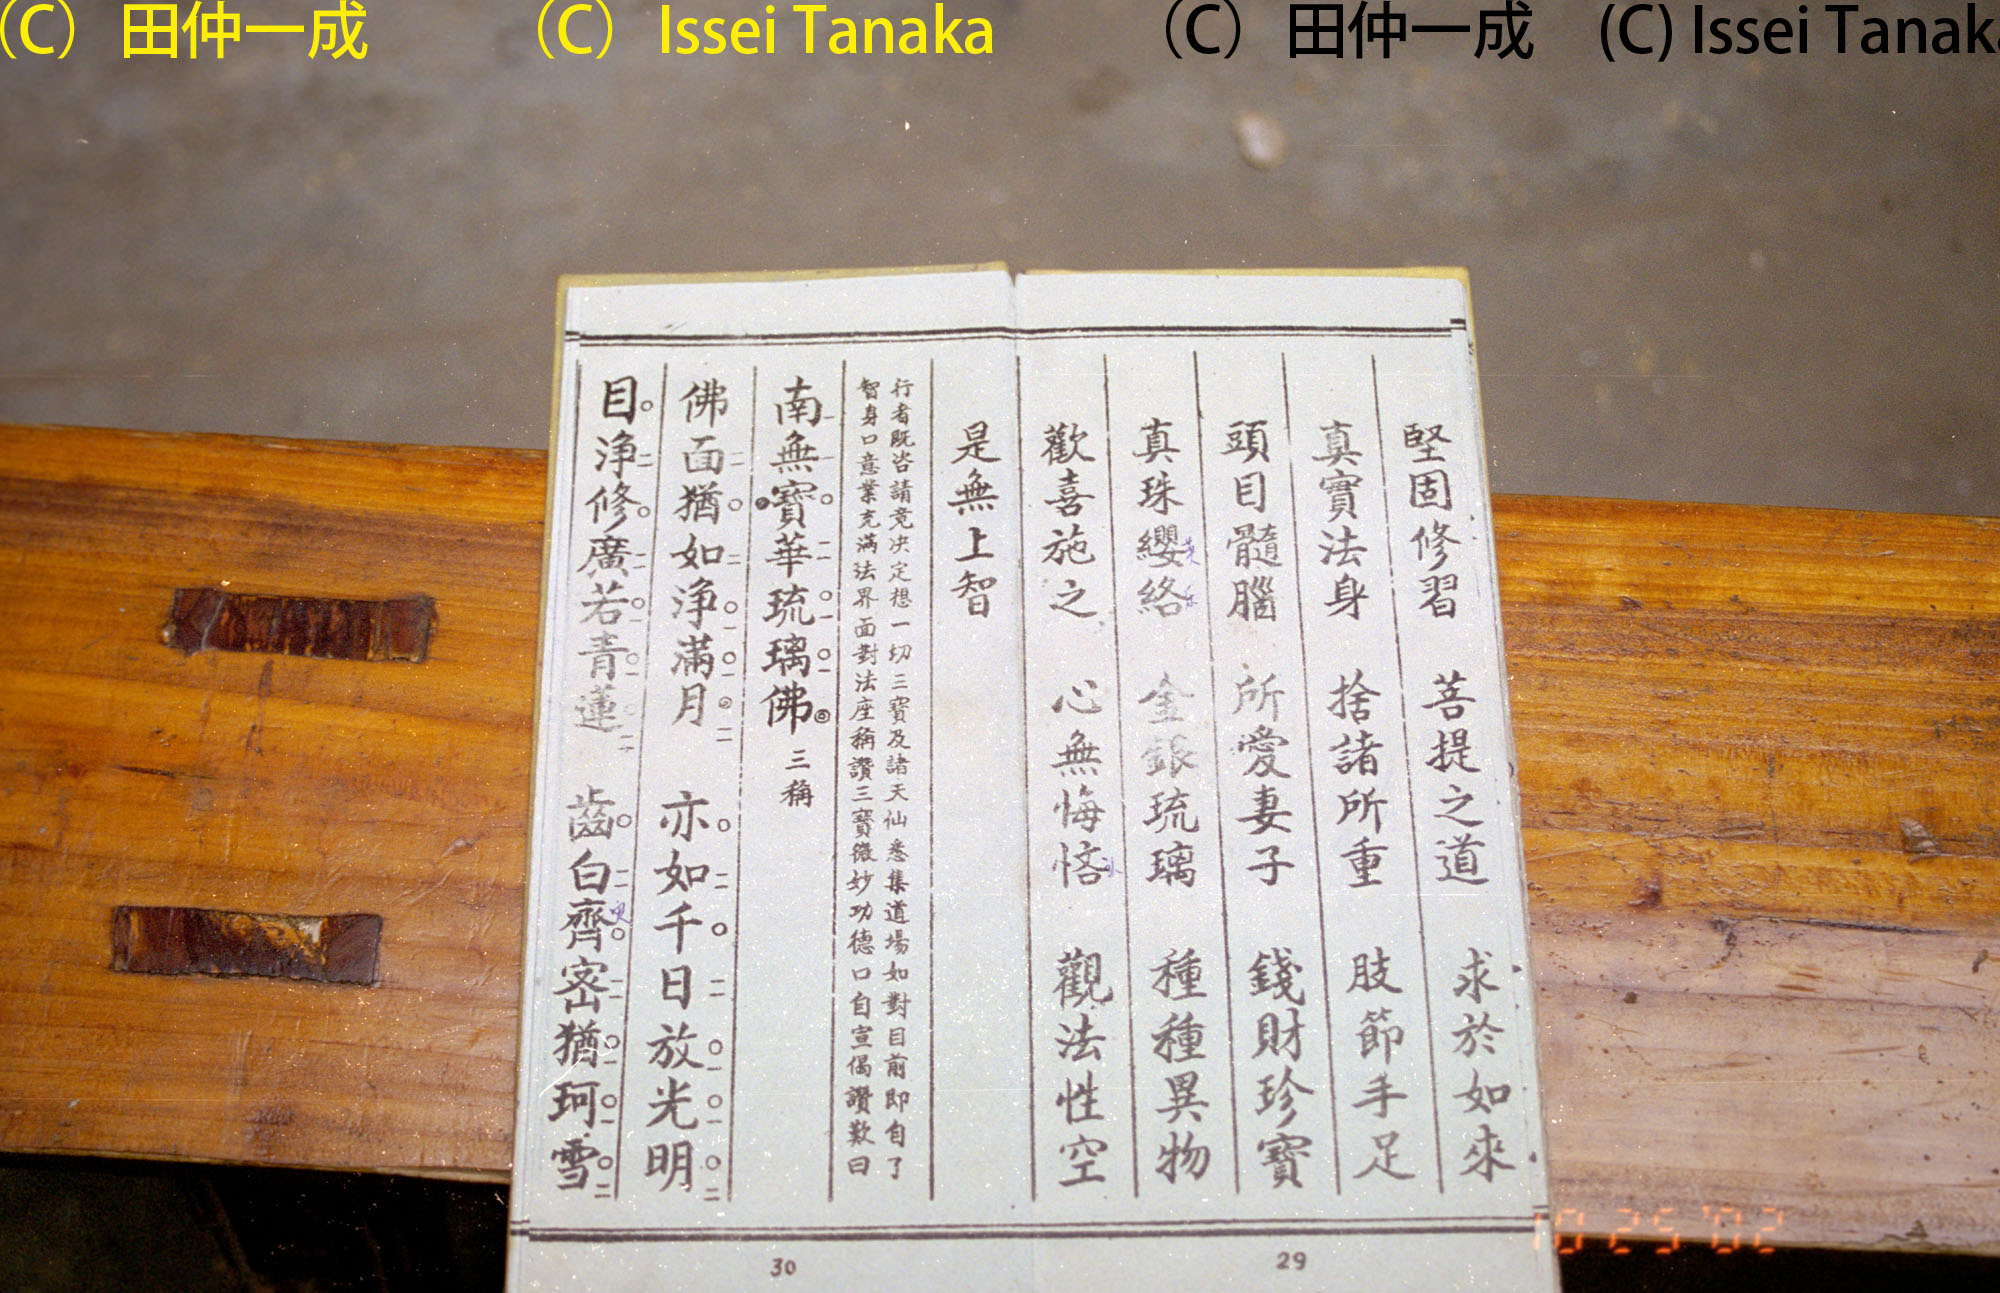 (C) 田仲一成 (C) Issei Tanaka (C) 田仲一成 (C) Issei Tanaka
堅固修習 菩提之道 求於如來
真實法身 捨諸所重 肢節手足
頭目髓腦 所愛妻子 錢財珍寶
真珠纓絡 金銀琉璃 種種異物
歡喜施之 心無悔悋 觀法性空
是無上智
行者既咨請竟決定想一切三寶及諸天仙悉集道場如對目前即自了
智身口意業充滿法界面對法座稱讚三寶微妙功德口自宣偈讚歎曰
南無寶華琉璃佛 三稱
佛面猶如淨滿月 亦如千日放光明
目淨修廣若青蓮 齒白齊密猶珂雪
29
30
10 25 '02